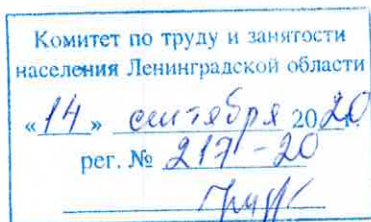 Комитет по труду и занятости
населения Ленинградской области
«14» сентября 2020 г.
рег. № 217-20